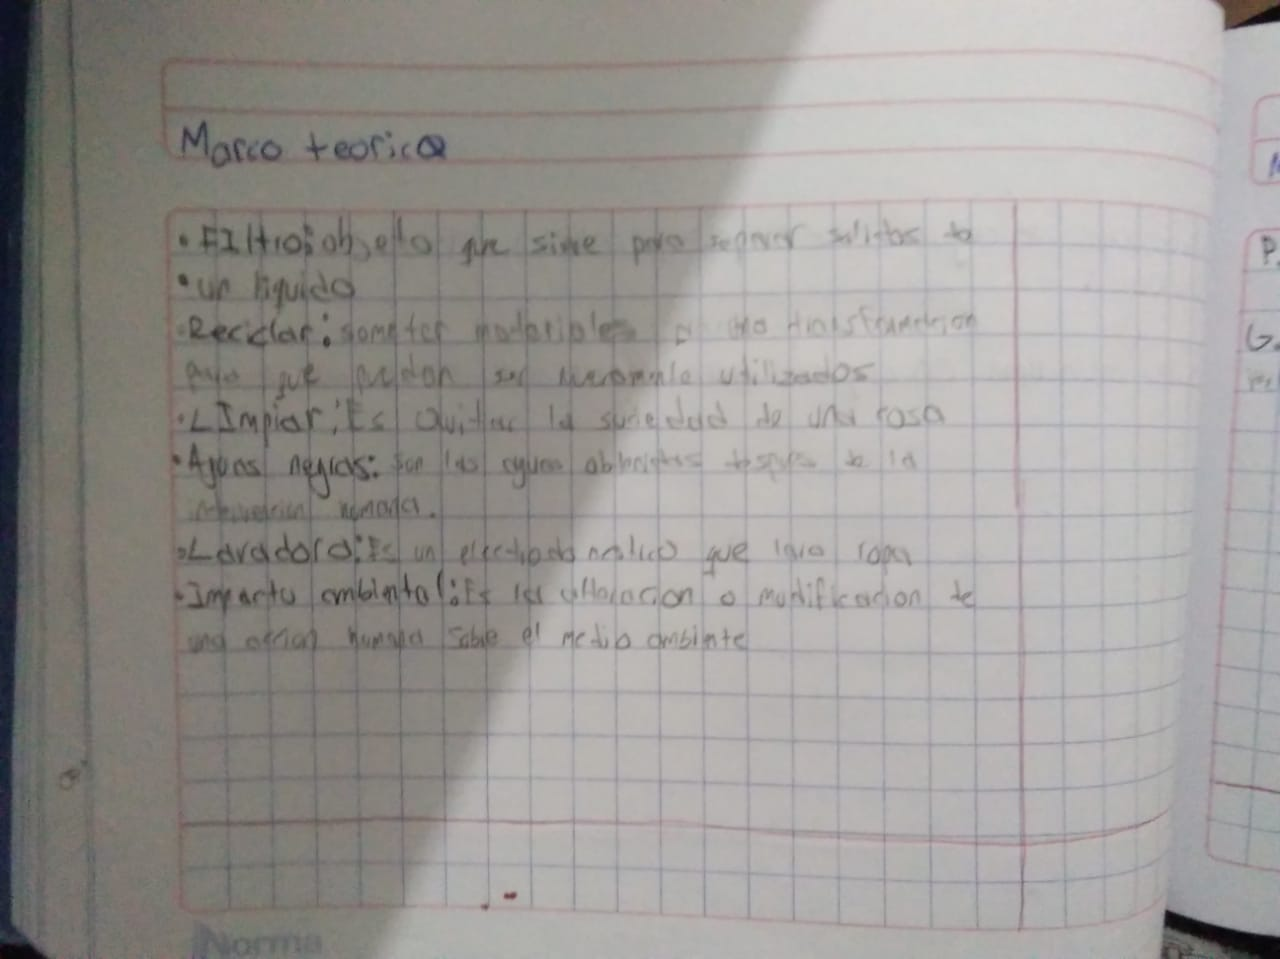 Marco teorico
• FIltro: objeto que sirve para separar solidos de
• un liquido
• Reciclar: someter materiales a una transformacion
para que puedan ser nuevamente utilizados
• LImpiar: Es quitar la suciedad de una cosa
• Aguas negras: Son las aguas obtenidas de la
humana.
• Lavadora: Es un electrodomestico que lava ropa
• Impacto ambintal: Es la alteracion o modificacion de
una accion humana sobre el medio ambiente
Norma
P.
G.